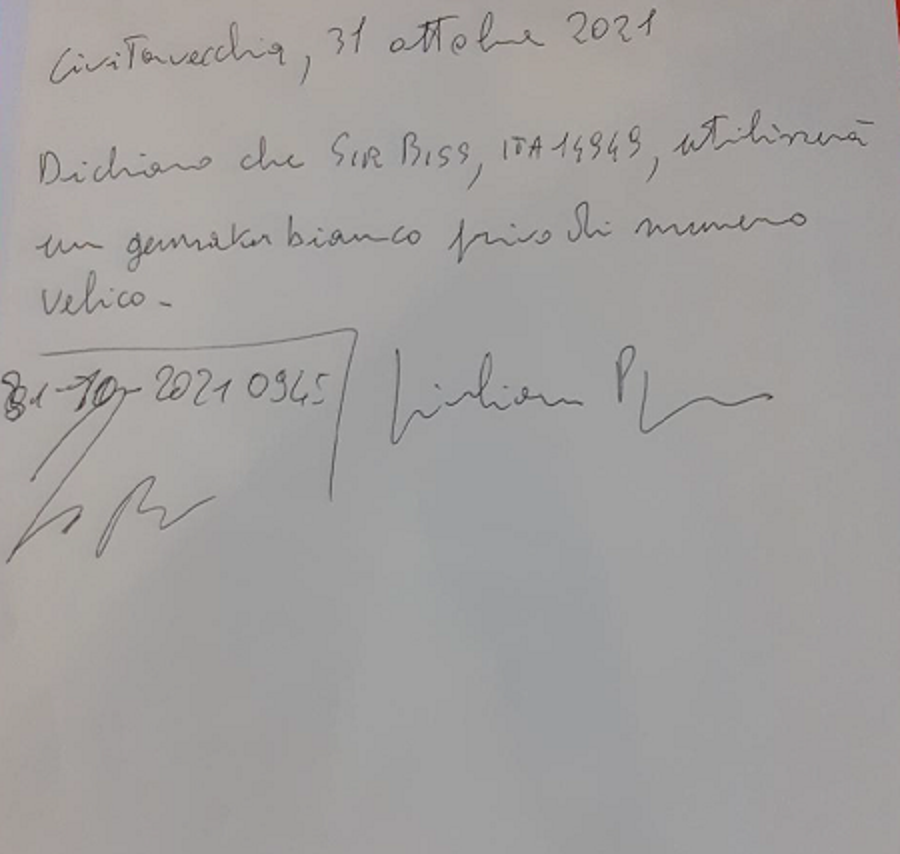 Civitavecchia, 31 ottobre 2021
Dichiaro che SIR BISS, ITA 14949, utilizzerà
un gennaker bianco privo di numero
velico.
31-10-2021 0945